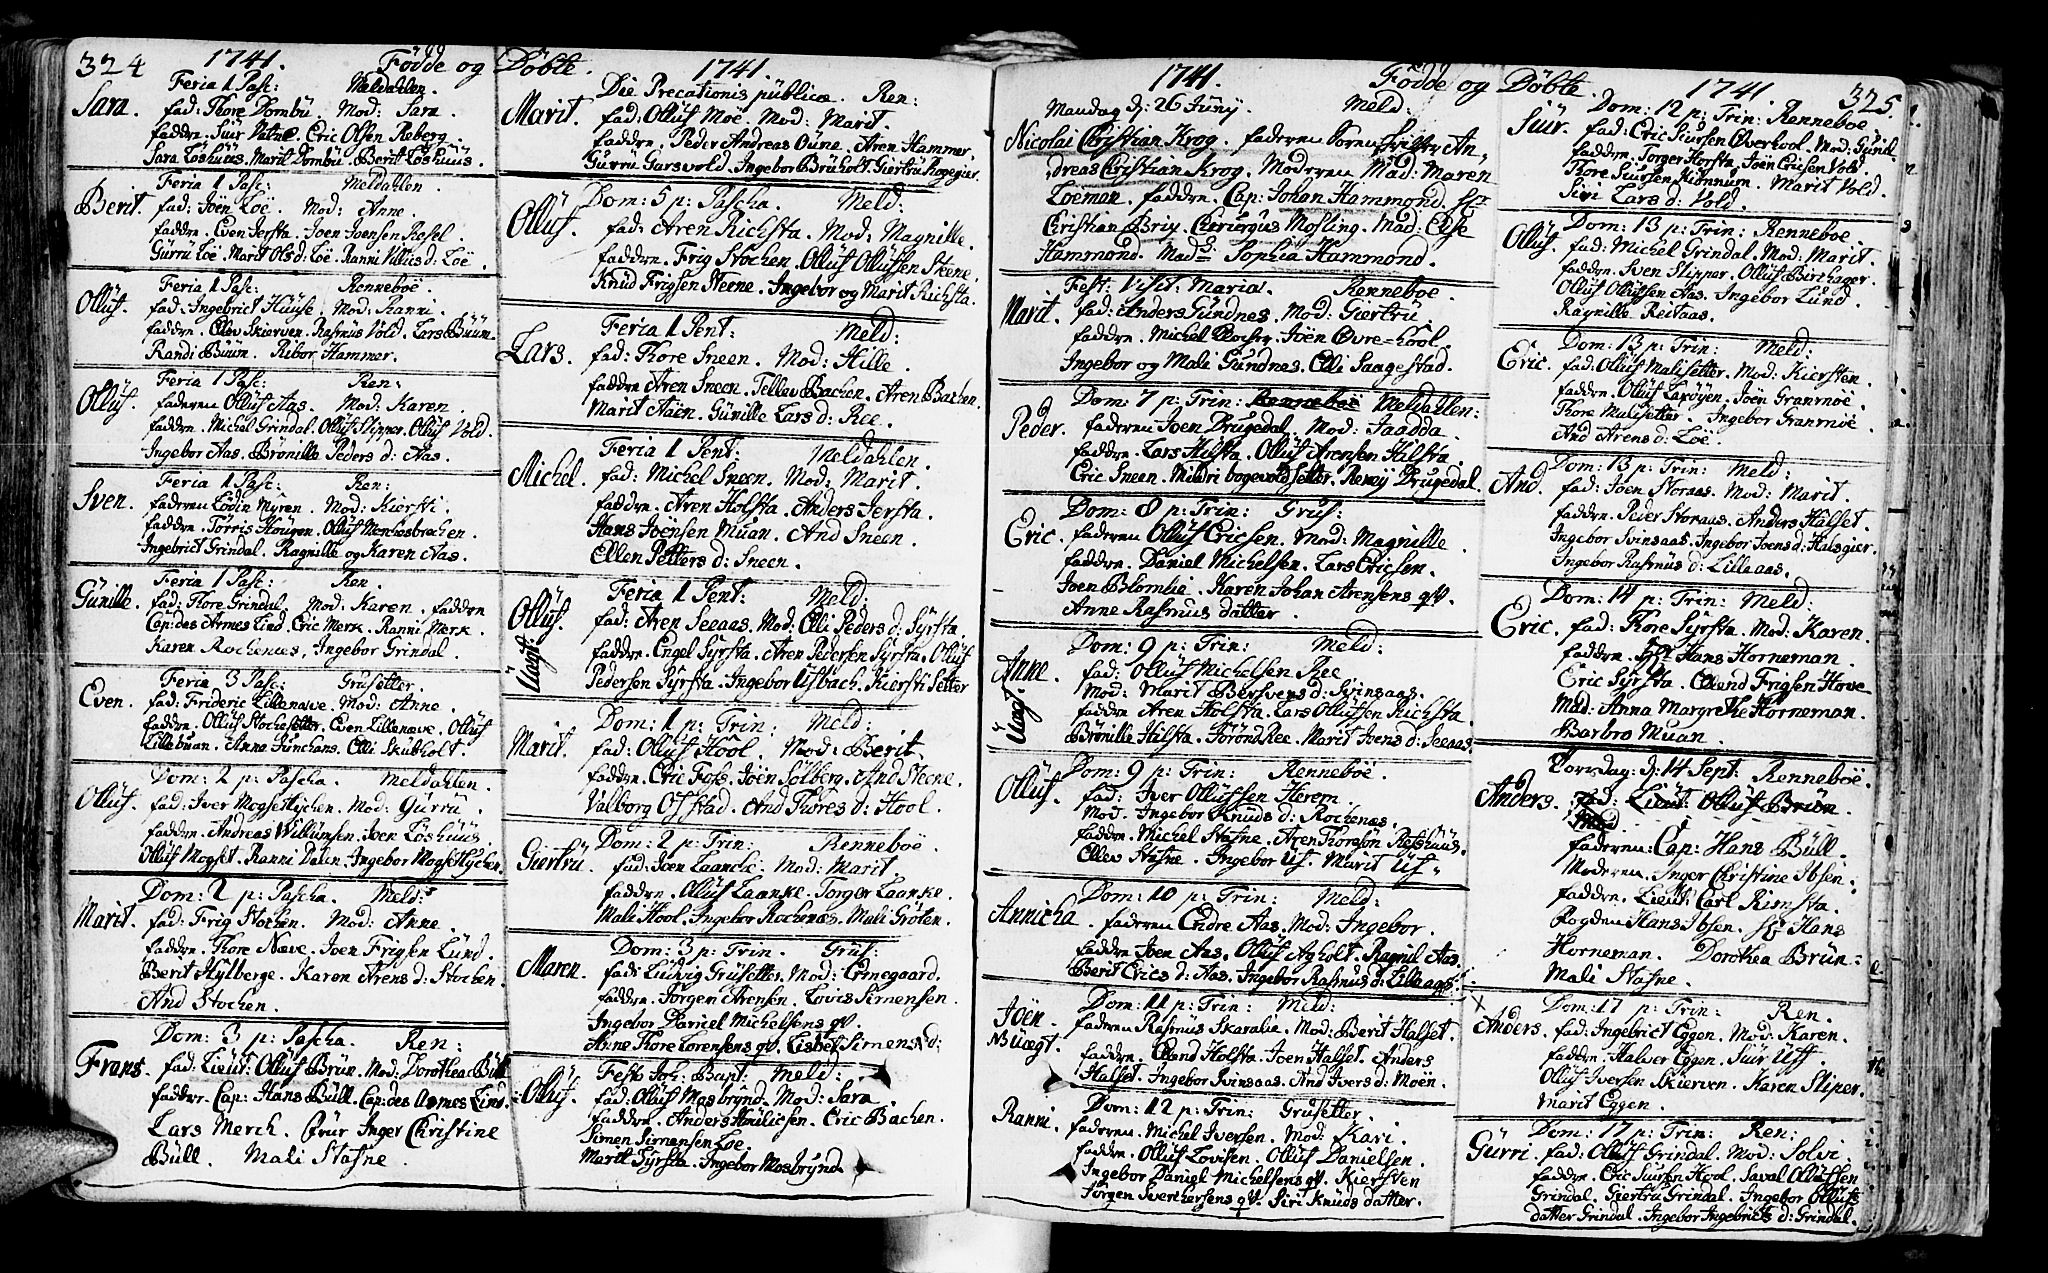 324 1741. Födde og Döbte. 1741.
Feria 1 Pasc: Meldahlen.
Sara. fad: Thore Dombü. Mod: Sara.
faddrn. Siur Vatnö. Eric Olsen Reberg.
Sara Löshüüs. Marit Dombü. Berit Löshüüs.
Feria 1 Pasc: Meldahlen.
Berit. fad: Joën Löe. Mod: Anne.
faddn. Even Jersta. Joen Joensen
Gurru Löe. Marit Ols d: Löe. Ranni Löe.
Feria 1 Pasc: Renneboë.
Ollüf. fad: Ingebrict Hüüse. Mod: Ranni.
faddrn. Ellev Skierven. Rasmüs Vold. Lars Büüm.
Randi Büüm. Ribor Hammer.
Feria 1 Pasc: Ren:
Ollüf. faderen Ollüf Aas. Mod: Karen.
faddrn. Michel Grindal. Ollüf Slipper. Ollüf Vold.
Ingebor Aas. Brönille Peders d: Aas.
Feria 1 Pasc: Ren:
Sven. faderen Lödin Myren. Mod: Kiersti.
faddrn. Törris Hougen. Ollüf
Ingebrict Grindal. Ragnille og Karen Aas.
Feria 1 Pasc: Ren.
Günille. fad: Thore Grindal. Mod: Karen. faddrn
Cap: des Armes Lind. Eric Merk. Ranni Merk.
Karen Rochenes, Ingebor Grindal.
Feria 3 Pasc: Grüsetter.
Even. fad: Frideric Lillenæve. Mod: Anne.
faddrn. Ollüf Stochesetter. Even Lillenæve. Ollüf
Lillebuan. Anna Elli Skibholt.
Dom: 2 p: Pascha. Meldahlen.
Ollüf. fad: Iver Mogseslychen. Mod: Gürrü.
faddrn. Andreas Willümsen. Joen Löshüüs
Ollüf Mogset. Ranni Dalen. Ingebor
Dom: 2 p: Pascha. Meld:
Marit. fad: Frig Stochen. Mod: Anne.
faddrn. Thore Næve. Joen Frigsen Lünd.
Berit Hylberge. Karen Arens d: Stochen.
And Stochen.
Dom: 3 p: Pascha. Ren:
Frans. fad: Lieut: Ollüf Brün. Mod: Dorothea Büll
faddrr. Cap: Hans Büll. Cap: des Armes Lind.
Lars Merch. Früe Inger Christine
Büll. Mali Stafne.
Die Precationis publicæ. Ren:
Marit. fad: Ollüf Moe. Mod: Marit.
faddrn. Peder Andreas Oüne. Aren Hammer.
Gürrü Garsvold. Ingebor Brüholt. Giertrü
Dom: 5 p: Pascha. Meld:
Ollüf. fad: Aren Richsta. Mod: Magnille.
faddrn. Frig Stochen. Ollüf Ollüfsen Stene
Knüd Frigsen Steene. Ingebor og Marit Richsta.
Feria 1 Pent: Meld:
Lars. fad: Thore Sneen. Mod: Hille.
faddrn Aren Sneen. Tellev Bachen. Aren Bachen.
Marit Aaen. Günille Lars d: Ree.
Feria 1 Pent: Meldahlen.
Michel. fad: Michel Sneen. Mod: Marit.
faddrn. Aren Holsta. Anders Jersta.
Hans Joënsen Muan. And Sneen.
Ellen Petters d: Sneen.
Feria 1 Pent: Meld:
Ollüf. fad: Aren Seeaas. Mod: Elli Peders d: Syrsta.
Üægt faddrn. Engel Syrsta. Aren Pedersen Syrsta. Ollüf
Pedersen Syrsta. Ingebor Üsbach. Kiersti Setter
Dom: 1 p: Trin: Meld:
Marit. fad: Ollüf Hool. Mod: Berit.
faddrn. Eric Foss. Joën Sölberg. And Steene.
Valborg Ofstad. And Thores d: Hool.
Dom: 2 p: Trin: Renneboë.
Giertrü. fad: Joen Laanche. Mod: Marit.
faddrn. Ollüf Laanke. Torger Laanke.
Mali Hool. Ingebor Rochenæs. Mali Gröten.
Dom: 3 p: Trin. Grüs:
Maren. fad: Ludvig Grüsetter. Mod: Ermegaard.
faddrn. Jörgen Arensen. Lovis Simensen.
Ingebor Daniel Michelsens qv.
Anne Thore Lorensens qv. Lisbet Simens d:
Fest: Joh: Bapt. Meld:
Ollüf. fad: Ollüf Mosbrynd. Mod: Sara.
faddrn. Anders Eric Bachen.
Simen Simensen Loe
Marit Syrsta. Ingebor Mosbrynd.
1741. Födde og Döbte. 1741. 325
Mandag d: 26 Juny. Meld:
Nicolai Christian Krog. faderen Sorenskriver An-
dreas Christian Krog. Moderen Mad: Maren
Loeman. faddrn. Cap: Johan Hammond. Sr
Christian Brix. Chirürgüs Mofling. Mad: Else
Hammond. Mads Sophia Hammond.
Fest: Visit: Mariæ. Renneboe.
Marit. fad: Anders Gündnes. Mod: Giertrü.
faddrn. Michel Joën Övre-hool.
Ingebor og Mali Gundnes. Elli Saagestad.
Dom: 7 p: Trin: Renneboë Meldahlen:
Peder. faderen Joen Drugedal. Mod: Jaadda.
faddrn. Lars Hilsta. Ollüf Arensen Hilsta.
Eric Sneen. Mildri bogevoldsetter. Drugedal.
Dom: 8 p: Trin: Grüs:
Eric. faderen Ollüf Ericsen. Mod: Magnille.
faddrn. Daniel Michelsen. Lars Ericsen.
Joen Blomlie. Karen Johan Arensens qv.
Anne Rasmus datter.
Dom: 9 p: Trin: Meld:
Anne. fad: Ollüf Michelsen Ree
Üægt. Mod: Marit Bersvens d: Svinsaas.
faddrn. Aren Holsta. Lars Ollüfsen Richsta.
Brönille Halsta. Töröndree. Marit Joens d: Seeaas.
Dom: 9 p: Trin: Renneboe.
Ollüf. fad: Iver Ollüfsen Herem.
Mod. Ingebor Knüds d: Rochenæs.
faddrn. Michel Stafne. Aren Thoresön
Ellev Stafne. Ingebor Üf. Marit Üf.
Dom: 10 p: Trin: Meld:
Annicha. faderen Endre Aas. Mod: Ingebor.
faddrn Joen Aas. Ollüf Agholt. Aas.
Berit Erics d: Aas. Ingebor Rasmus d: Lilleaas.
Dom: 11 p: Trin: Meld:
Joën. faderen Rasmüs Skaralie. Mod: Berit Halset.
N: uægt. faddrn. Erend Holsta. Joen Halset. Anders
Halset. Ingebor Svinsaas. And Ivers d: Moën.
Dom: 12 p: Trin: Grusetter.
Ranni. faderen. Michel Iversen. Mod: Kari.
faddrn. Ollüf Lovisen. Ollüf Danielsen.
Ingebor Daniel Michelsens qv. Kiersten
Jörgen qv. Siri Knüds datter.
Dom: 12 p: Trin: Renneboe
Siur. fad: Eric Siursen Overhool. Mod: Günil
faddrn. Torger Horsta. Joën Ericsen Vold.
Thore Siursen Kiönnum. Marit Vold.
Siri Lars d: Vold.
Dom: 13 p: Trin: Renneboe
Ollüf. fad: Michel Grindal. Mod: Marit.
faddrn. Sven Slipper. Ollüf Birchager.
Ollüf Ollüfsen Aas. Ingebor Lund.
Ragnille Reitaas.
Dom: 13 p: Trin: Meld:
Eric. fad: Ollüf Malisetter. Mod: Kiersten.
faddrn. Ollüf Laxöyen. Joën Granmoë.
Thore Malisetter. Ingebor Granmoë.
And Arens d: Löe.
Dom: 13 p: Trin: Meld:
And. fad: Joen Storaas. Mod: Marit.
faddrn. Peder Storaas. Anders Halset.
Ingebor Svinsaas. Ingebor Joens d: Halsgier.
Ingebor Rasmüs d: Lilleaas.
Dom: 14 p: Trin: Meld:
Eric. fad: Thore Syrsta. Mod: Karen.
faddrn. Sr Hans Horneman.
Eric Syrsta. Erend Frigsen Hove
Mad: Anna Margrethe Horneman.
Barbro Muan.
Torsdag: d: 14 Sept: Renneboë.
Anders. fad: Lieut: Ollüf Brün
Mod
faderen: Cap: Hans Büll.
Moderen. Inger Christine Ibsen.
faddrn. Lieut: Carl Rimsta.
Fogden Hans Ibsen. Sr Hans
Horneman. Dorothea Brün.
Mali Stafne.
Dom: 17 p: Trin: Ren.
X Anders. fad: Ingebrict Eggen. Mod: Karen.
faddrn. Halver Eggen. Siur Üff
Ollüf Iversen Skierven. Karen Sliper.
Marit Eggen.
Dom: 17 p: Trin: Ren:
Gürri. fad: Ollüf Grindal. Mod: Solvi.
faddrn. Eric Siursen Hool. Saval Ollüfsen
Grindal. Giertrü Grindal. Ingebor Ollüfs
datter Grindal. Ingebor Ingebricts d: Grindal.